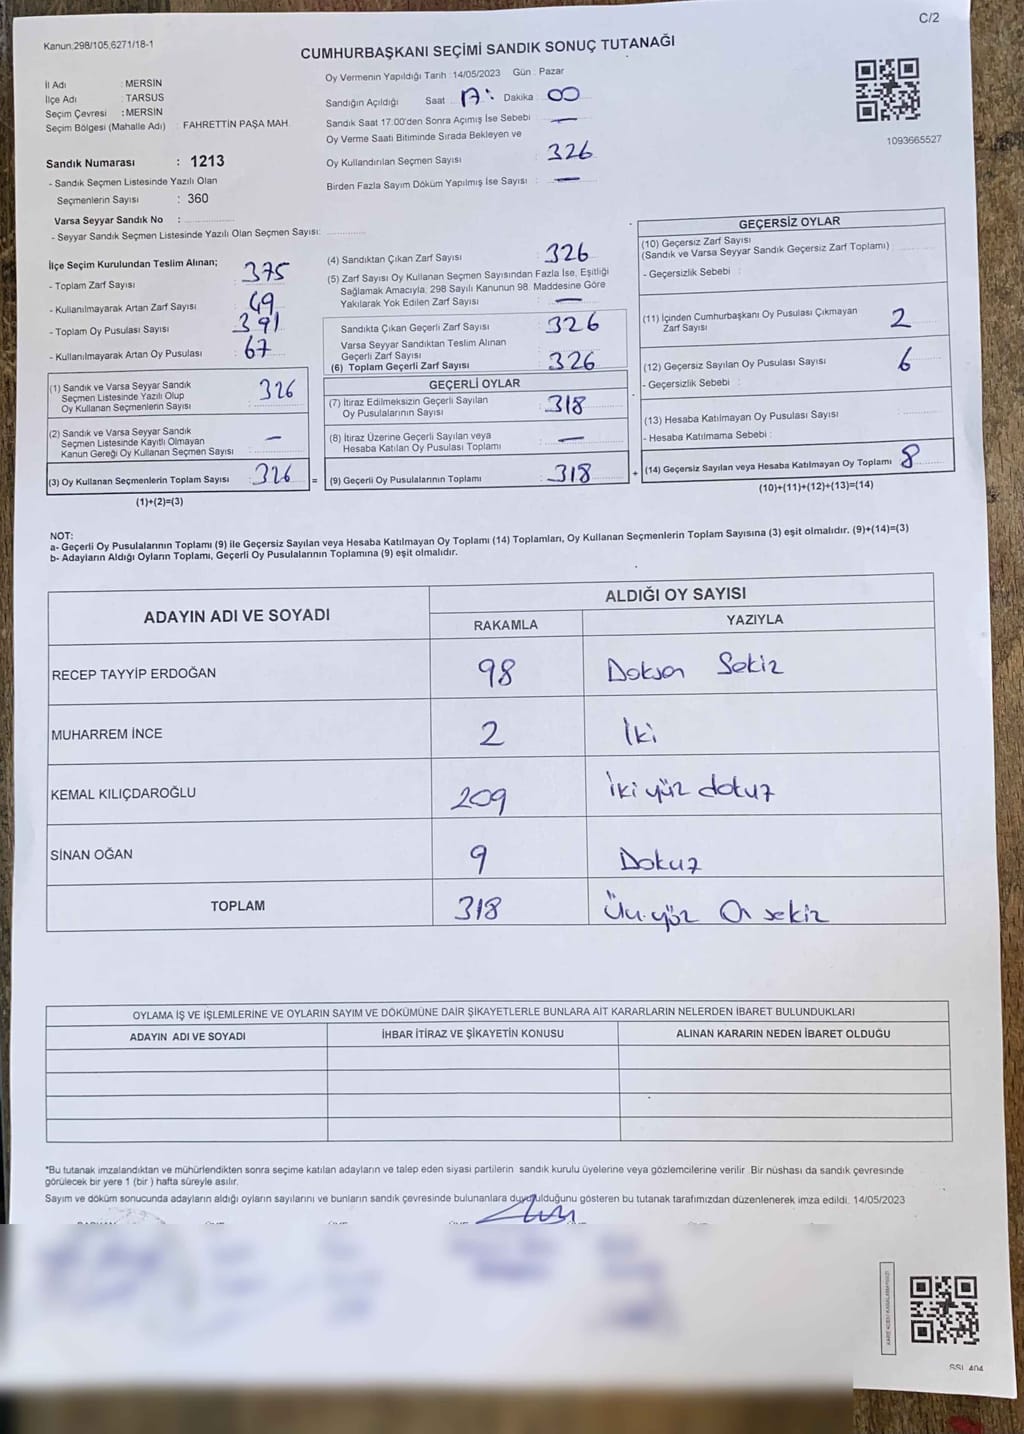 C/2
Kanun:298/105,6271/18-1
CUMHURBAŞKANI SEÇİMİ SANDIK SONUÇ TUTANAĞI
İl Adı : MERSİN
İlçe Adı : TARSUS
Seçim Çevresi : MERSİN
Seçim Bölgesi (Mahalle Adı) : FAHRETTİN PAŞA MAH.
Sandık Numarası : 1213
- Sandık Seçmen Listesinde Yazılı Olan
Seçmenlerin Sayısı : 360
Varsa Seyyar Sandık No :
- Seyyar Sandık Seçmen Listesinde Yazılı Olan Seçmen Sayısı:
Oy Vermenin Yapıldığı Tarih : 14/05/2023 Gün : Pazar
Sandığın Açıldığı Saat 17: Dakika 00
Sandık Saat 17:00'den Sonra Açımış İse Sebebi : —
Oy Verme Saati Bitiminde Sırada Bekleyen ve
Oy Kullandırılan Seçmen Sayısı : 326
Birden Fazla Sayım Döküm Yapılmış İse Sayısı : —
1093665527
İlçe Seçim Kurulundan Teslim Alınan;
- Toplam Zarf Sayısı : 375
- Kullanılmayarak Artan Zarf Sayısı : 49
- Toplam Oy Pusulası Sayısı : 391
- Kullanılmayarak Artan Oy Pusulası : 67
(1) Sandık ve Varsa Seyyar Sandık
Seçmen Listesinde Yazılı Olup
Oy Kullanan Seçmenlerin Sayısı : 326
(2) Sandık ve Varsa Seyyar Sandık
Seçmen Listesinde Kayıtlı Olmayan
Kanun Gereği Oy Kullanan Seçmen Sayısı : —
(3) Oy Kullanan Seçmenlerin Toplam Sayısı : 326 =
(1)+(2)=(3)
(4) Sandıktan Çıkan Zarf Sayısı : 326
(5) Zarf Sayısı Oy Kullanan Seçmen Sayısından Fazla İse, Eşitliği
Sağlamak Amacıyla, 298 Sayılı Kanunun 98. Maddesine Göre
Yakılarak Yok Edilen Zarf Sayısı : —
Sandıkta Çıkan Geçerli Zarf Sayısı : 326
Varsa Seyyar Sandıktan Teslim Alınan
Geçerli Zarf Sayısı
(6) Toplam Geçerli Zarf Sayısı : 326
GEÇERLİ OYLAR
(7) İtiraz Edilmeksizin Geçerli Sayılan
Oy Pusulalarının Sayısı : 318
(8) İtiraz Üzerine Geçerli Sayılan veya
Hesaba Katılan Oy Pusulası Toplamı : —
(9) Geçerli Oy Pusulalarının Toplamı : 318 +
GEÇERSİZ OYLAR
(10) Geçersiz Zarf Sayısı
(Sandık ve Varsa Seyyar Sandık Geçersiz Zarf Toplamı) :
- Geçersizlik Sebebi :
(11) İçinden Cumhurbaşkanı Oy Pusulası Çıkmayan
Zarf Sayısı : 2
(12) Geçersiz Sayılan Oy Pusulası Sayısı : 6
- Geçersizlik Sebebi :
(13) Hesaba Katılmayan Oy Pusulası Sayısı :
- Hesaba Katılmama Sebebi :
(14) Geçersiz Sayılan veya Hesaba Katılmayan Oy Toplamı : 8
(10)+(11)+(12)+(13)=(14)
NOT:
a- Geçerli Oy Pusulalarının Toplamı (9) ile Geçersiz Sayılan veya Hesaba Katılmayan Oy Toplamı (14) Toplamları, Oy Kullanan Seçmenlerin Toplam Sayısına (3) eşit olmalıdır. (9)+(14)=(3)
b- Adayların Aldığı Oyların Toplamı, Geçerli Oy Pusulalarının Toplamına (9) eşit olmalıdır.
ADAYIN ADI VE SOYADI
ALDIĞI OY SAYISI
RAKAMLA YAZIYLA
RECEP TAYYİP ERDOĞAN 98 Doksan Sekiz
MUHARREM İNCE 2 İki
KEMAL KILIÇDAROĞLU 209 İki yüz dokuz
SİNAN OĞAN 9 Dokuz
TOPLAM 318 Üç yüz On sekiz
OYLAMA İŞ VE İŞLEMLERİNE VE OYLARIN SAYIM VE DÖKÜMÜNE DAİR ŞİKAYETLERLE BUNLARA AİT KARARLARIN NELERDEN İBARET BULUNDUKLARI
ADAYIN ADI VE SOYADI İHBAR İTİRAZ VE ŞİKAYETİN KONUSU ALINAN KARARIN NEDEN İBARET OLDUĞU
*Bu tutanak imzalandıktan ve mühürlendikten sonra seçime katılan adayların ve talep eden siyasi partilerin sandık kurulu üyelerine veya gözlemcilerine verilir. Bir nüshası da sandık çevresinde
görülecek bir yere 1 (bir ) hafta süreyle asılır.
Sayım ve döküm sonucunda adayların aldığı oyların sayılarını ve bunların sandık çevresinde bulunanlara duyurulduğunu gösteren bu tutanak tarafımızdan düzenlenerek imza edildi. 14/05/2023